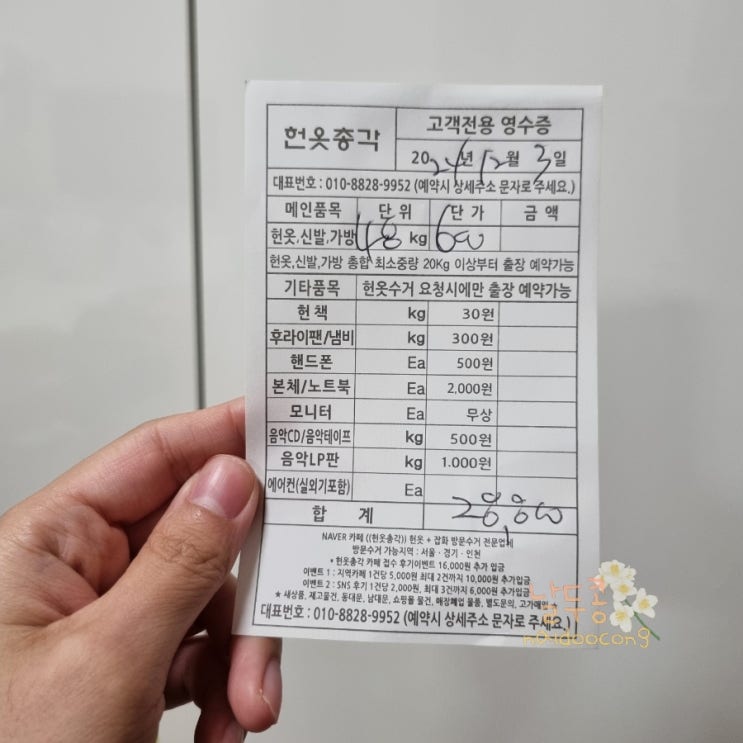 헌옷총각
고객전용 영수증
2024년 12월 3일
대표번호 : 010-8828-9952 (예약시 상세주소 문자로 주세요.)
메인품목 단 위 단 가 금 액
헌옷,신발,가방 48 kg 600
헌옷,신발,가방 총합 최소중량 20Kg 이상부터 출장 예약가능
기타품목 헌옷수거 요청시에만 출장 예약가능
헌 책 kg 30원
후라이팬/냄비 kg 300원
핸드폰 Ea 500원
본체/노트북 Ea 2,000원
모니터 Ea 무상
음악CD/음악테이프 kg 500원
음악LP판 kg 1.000원
에어컨(실외기포함) Ea
합 계 28,800
NAVER 카페 ((헌옷총각)) 헌옷 + 잡화 방문수거 전문업체
방문수거 가능지역 : 서울 · 경기 · 인천
• 헌옷총각 카페 접수 후기이벤트 16,000원 추가 입금
이벤트 1 : 지역카페 1건당 5,000원 최대 2건까지 10,000원 추가입금
이벤트 2 : SNS 후기 1건당 2,000원, 최대 3건까지 6,000원 추가입금
★ 새상품, 재고물건, 동대문, 남대문, 쇼핑몰 물건, 매장폐업 물품, 별도문의, 고가매입 ★
대표번호 : 010-8828-9952 (예약시 상세주소 문자로 주세요.)
남두콩
namdoocong